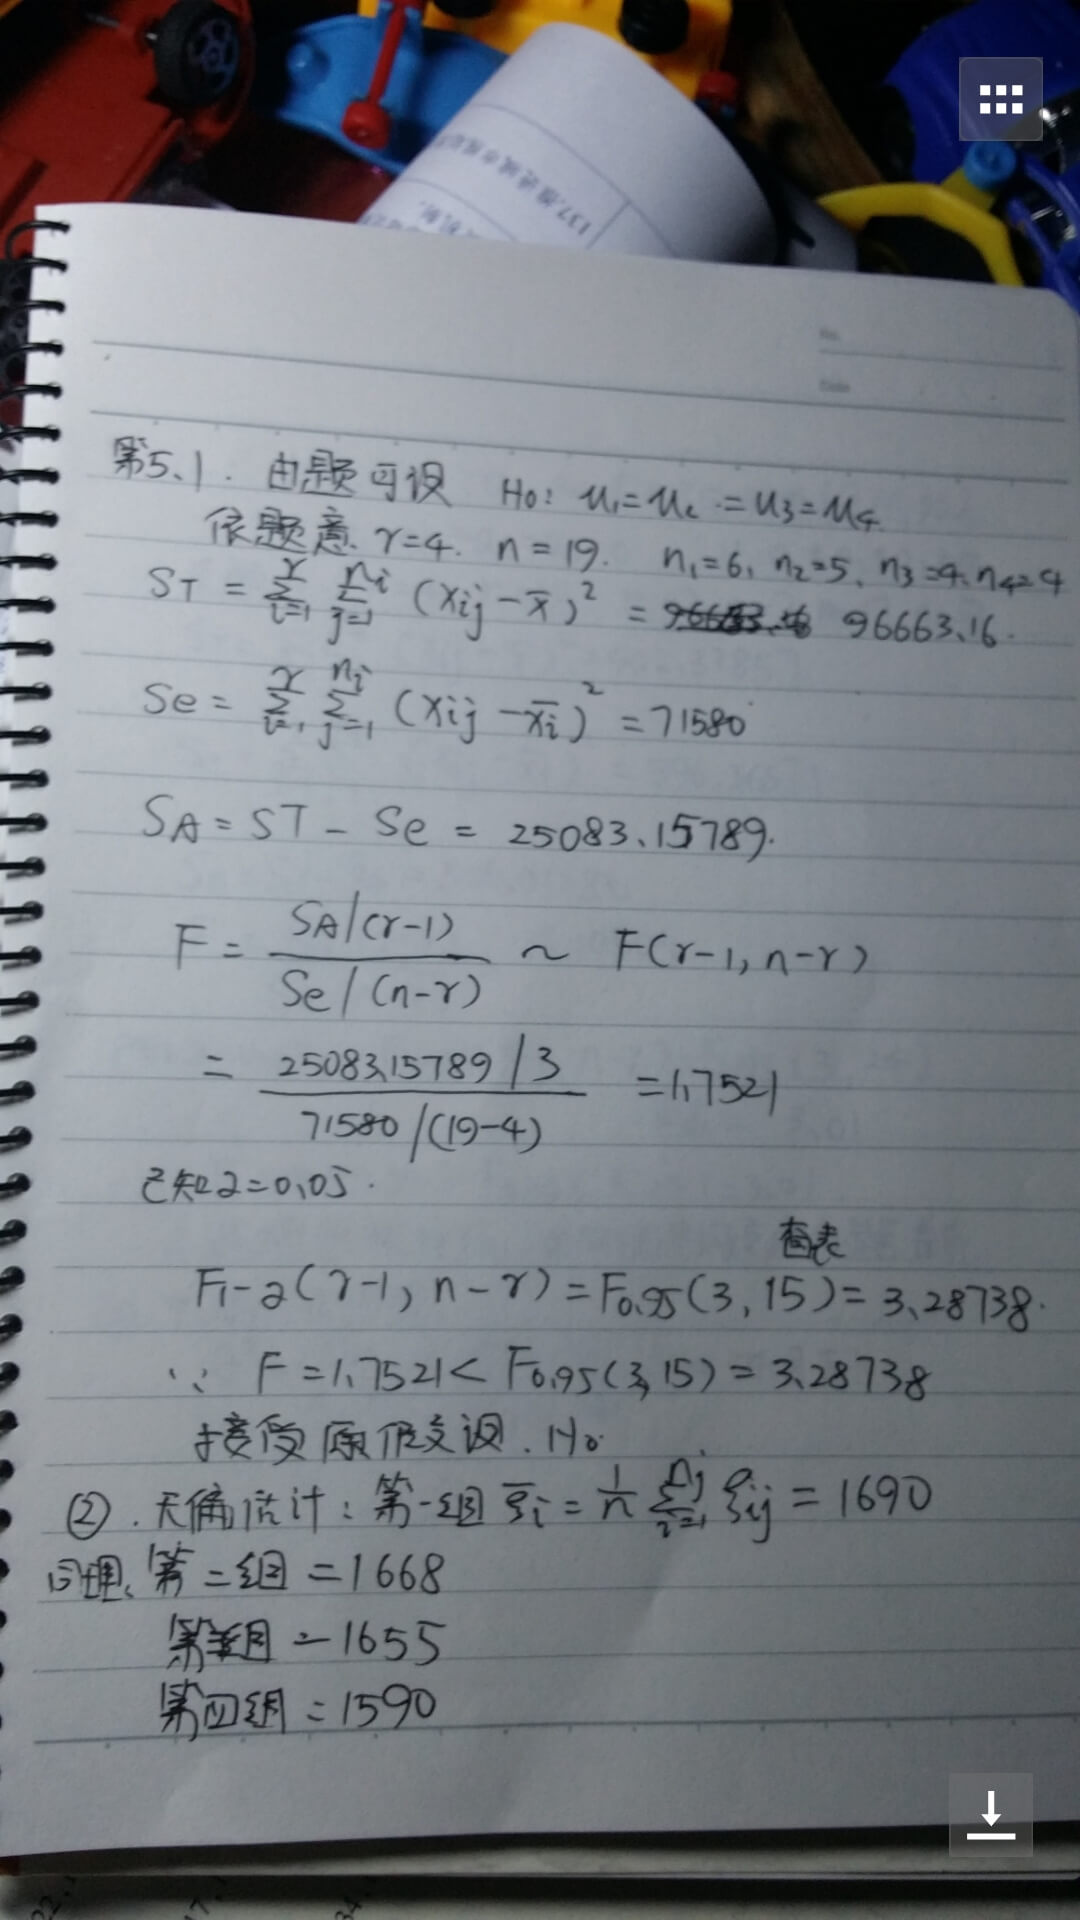 137.推进城市规划
No.
Date
第5、1. 由题可设 H0: u1=u2=u3=u4
依题意、r=4. n=19. n1=6, n2=5, n3=4, n4=4
ST = Σ(i=1→r) Σ(j=1→ni) (xij - x̄)² = 96663.16.
Se = Σ(i=1→r) Σ(j=1→ni) (xij - x̄i)² = 71580
SA = ST - Se = 25083.15789.
F = SA/(r-1) / Se/(n-r) ~ F(r-1, n-r)
= 25083.15789/3 / 71580/(19-4) = 1.7521
已知α=0.05.
查表
F1-α(r-1, n-r) = F0.95(3, 15) = 3.28738.
∵ F = 1.7521 < F0.95(3, 15) = 3.28738
接受原假设. H0.
②. 无偏估计: 第一组 ξ̄i = 1/n Σ(i=1→nj) ξij = 1690
同理、第二组 = 1668
第三组 = 1655
第四组 = 1590